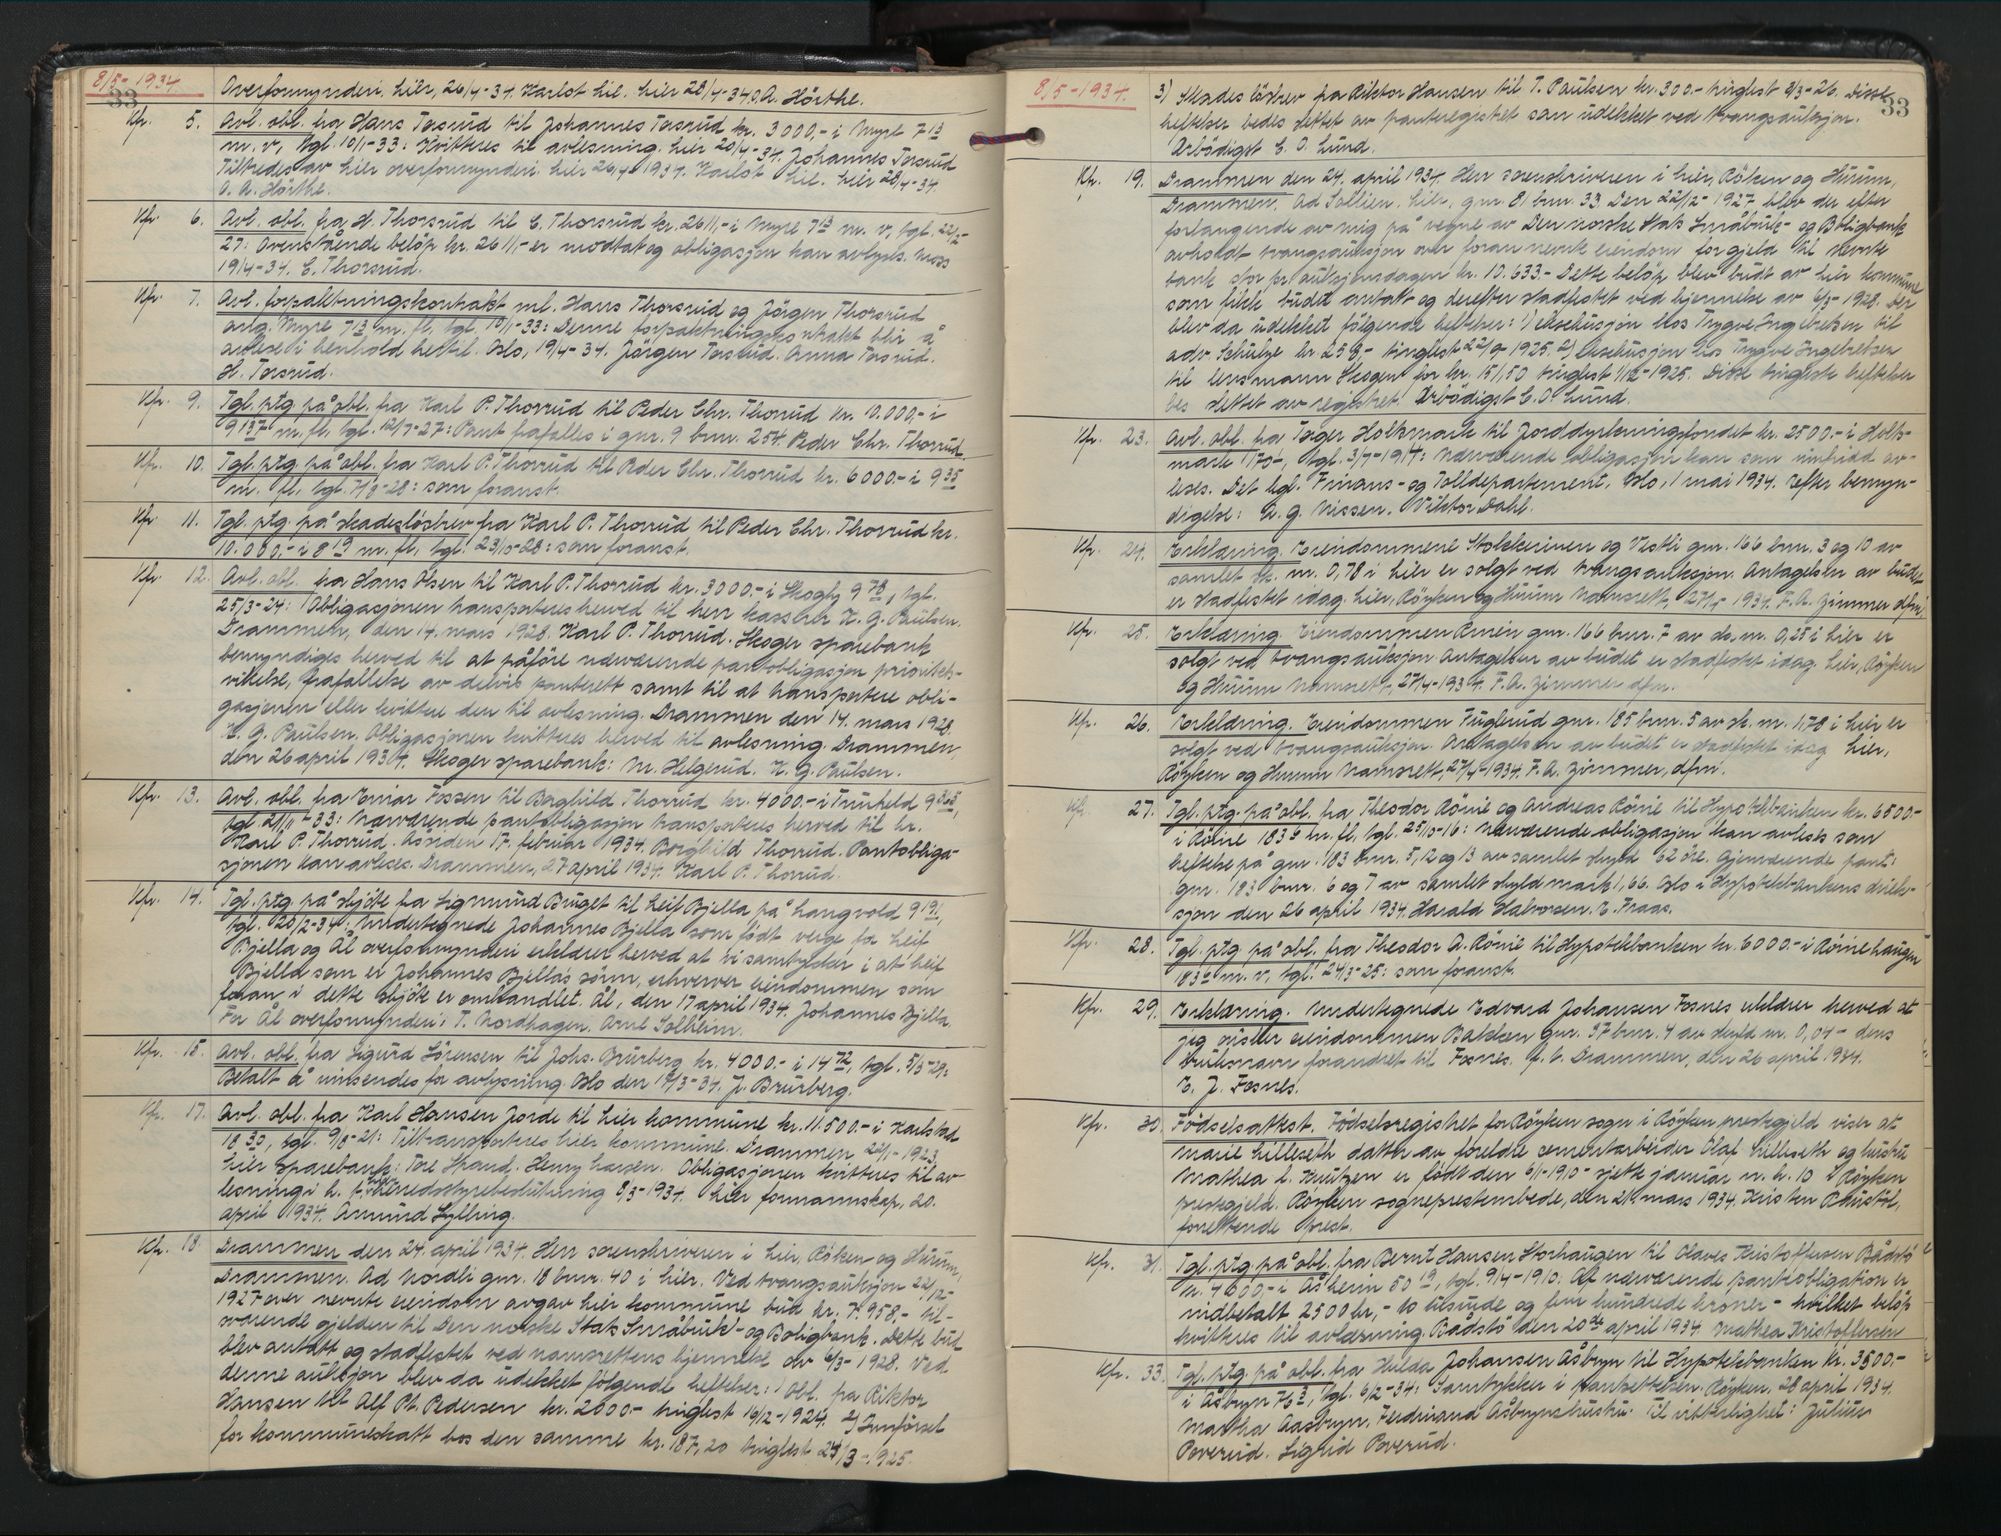 8/5-1934.
33
Overformynderi. Lier, 26/4-34. Karlot Lie. Lier 28/4-34 O. A. Hörthe.
Kfr. 5. Avl. obl. fra Hans Torsrud til Johannes Torsrud kr. 3000,- i Myre 7 13
m. v, tgl. 10/1-33: Kvitteres til avlesning. Lier 20/4-34. Johannes Torsrud
Tiltredes av Lier overformynderi. Lier 26/4-1934. Karlot Lie. Lier 28/4-34
O. A. Hörthe.
Kfr. 6. Avl. obl. fra H. Thorsrud til E. Thorsrud kr. 2611,- i Myre 7 13 m. v, tgl. 22/2-
27: Ovenstående belöp kr. 2611,- er modtat og obligasjon kan avlyses. Moss
19/4-34. E. Thorsrud.
Kfr. 7. Avl. forpaktningskontrakt ml. Hans Thorsrud og Jörgen Thorsrud
ang. Myre 7 13 m. fl, tgl. 10/1-33: Denne forpaktningskontrakt blir å
avlese i henhold hertil. Oslo, 19/4-34. Jörgen Torsrud. Anna Torsrud.
H. Torsrud.
Kfr. 9. Tgl. ptg på obl. fra Karl P. Thorrud til Peder Chr. Thorrud kr. 10.000,- i
9 137 m. fl, tgl. 12/7-27: Pant frafalles i gnr. 9 bnr. 254. Peder Chr. Thorrud.
Kfr. 10. Tgl. ptg på obl. fra Karl P. Thorrud til Peder Chr. Thorrud kr. 6000.- i 9 35
m. fl, tgl. 7/8-28: som foranst.
Kfr. 11. Tgl. ptg. på skadeslösbrev fra Karl P. Thorrud til Peder Chr. Thorrud kr.
10.000,- i 8 19 m. fl, tgl. 23/10-28: som foranst.
Kfr. 12. Avl. obl. fra Hans Olsen til Karl P. Thorrud kr. 3000.- i Skogly 9 78, tgl.
25/3-24: Obligasjonen transporteres herved til herr kasserer K. G. Paulsen.
Drammen, den 14. mars 1928. Karl P. Thorrud. Skoger sparebank
bemyndiges herved til at påföre nærværende pantobligasjon prioritets-
vikelse, frafallelse av delvis panterett samt til at transportere obli-
gasjonen eller kvittere den til avlesning. Drammen den 14. mars 1928.
K. G. Paulsen. Obligasjonen kvitteres herved til avlesning. Drammen,
den 26 april 1934. Skoger sparebank: M. Helgerud. K. G. Paulsen.
Kfr. 13. Avl. obl. fra Einar Fossen til Borghild Thorrud kr. 4000.- i Truheld 9
tgl. 21/11-33: Nærværende pantobligasjon transporteres herved til hr.
Karl P. Thorrud. Åsiden 17. februar 1934. Borghild Thorrud. Pantobliga-
sjonen kan avleses. Drammen, 27 april 1934. Karl P. Thorrud.
Kfr. 14. Tgl. ptg på skjöte fra Sigmund Bruget til Leif Bjella på Langvold 9 191,
tgl. 20/2-34: Undertegnede Johannes Bjella som födt verge for Leif
Bjella og Ål overformynderi erklærer herved at vi samtykker i at Leif
Bjella som er Johannes Bjella's sönn, erhverver eiendommen som
foran i dette skjöte er omhandlet. Ål, den 17 april 1934. Johannes Bjella.
For Ål overformynderi: T. Nordhagen. Arne Solheim.
Kfr. 15. Avl. obl. fra Sigurd Sörensen til Johs. Brurberg kr. 4000.- i 14 72, tgl. 5/3-29:
Betalt å innsendes for avlysning. Oslo den 19/3-34. J. Brurberg.
Kfr. 17. Avl. obl. fra Karl Hansen Jorde til Lier kommune kr. 11.500.- i Karlstad
18 30, tgl. 9/8-21: Tiltransporteres Lier kommune. Drammen 22/1-1923.
Lier sparebank: Tore Strand. Henry Larsen. Obligasjonen kvitteres til av-
lesning i h. t. herredsstyrebeslutning 8/3-1934. Lier formannskap, 20.
april 1934. Amund Lylling.
Kfr. 18. Drammen den 24. april 1934. Herr sorenskriveren i Lier, Röken og Hurum,
Drammen. Ad Nordli gnr. 18 bnr. 40 i Lier. Ved tvangsauksjon 22/12-
1927 over nevnte eiendom avgav Lier kommune bud kr. 7.958,- til-
svarende gjelden til Den norske Stats Småbruk- og Boligbank. Dette bud
blev antatt og stadfestet ved namsrettens kjennelse av 6/3-1928. Ved
denne auksjon blev da udekket fölgende heftelser: 1) Obl. fra Riktor
Hansen til Alf Pt. Pedersen kr. 2000.- tinglest 16/12-1924. 2) Innförsel
for kommuneskatt hos den samme kr. 187,20 tinglest 24/3-1925.
8/5-1934.
33
3) Skadeslösbrev fra Riktor Hansen til T. Paulsen kr. 300.- tinglest 2/3-26. Disse
heftelser bedes slettet av panteregistret som udekket ved tvangsauksjon.
Ærbödigst C. O. Lund.
Kfr. 19. Drammen den 24. april 1934. Herr sorenskriveren i Lier, Röken og Hurum,
Drammen. Ad Sollien, Lier, gnr. 81 bnr. 33. Den 22/12-1927 blev der efter
forlangende av mig på vegne av Den norske Stats Småbruk- og Boligbank
avholdt tvangsauksjon over foran nevnte eiendom for gjeld til nevnte
bank stor pr. auksjonsdagen kr. 10.633.- Dette belöp blev budt av Lier kommune
som fikk budet antatt og derefter stadfestet ved kjennelse av 6/3-1928. Der
blev da udekket fölgende heftelser: 1) Eksekusjon hos Trygve Ingebretsen til
adv. Schulze kr. 258,- tinglest 22/9-1925. 2) Eksekusjon hos Trygve Ingebretsen
til lensmann Skogen for kr. 151,50 tinglest 1/12-1925. Disse tingleste heftelser
bes slettet av registret. Ærbödigst C. O. Lund.
Kfr. 23. Avl. obl. fra Torger Holtsmark til Jorddyrkningsfondet kr. 2500.- i Holts-
mark 170 1, tgl. 3/7-1917: Nærværende obligasjon kan som innfridd av-
leses. Det kgl. Finans- og Tolldepartement, Oslo, 1 mai 1934. Efter bemyn-
digelse: A. G. Nissen. Viktor Dahl.
Kfr. 24. Erklæring. Eiendommene Stokkerinven og Vestli gnr. 166 bnr. 3 og 10 av
samlet sk. m. 0,78 i Lier er solgt ved tvangsauksjon. Antagelsen av budet
er stadfestet idag. Lier, Röyken og Hurum Namsrett, 27/4-1934. F. A. Zimmer dfm.
Kfr. 25. Erklæring. Eiendommen Rmén gnr. 166 bnr. 7 av sk. m. 0,25 i Lier er
solgt ved tvangsauksjon. Antagelsen av budet er stadfestet idag. Lier, Röyken
og Hurum Namsrett, 27/4-1934. F. A. Zimmer dfm.
Kfr. 26. Erklæring. Eiendommen Fuglerud gnr. 185 bnr. 5 av sk. m. 1,78 i Lier er
solgt ved tvangsauksjon. Antagelsen av budet er stadfestet idag. Lier,
Röyken og Hurum Namsrett, 27/4-1934. F. A. Zimmer, dfm.
Kfr. 27. Tgl. ptg. på obl. fra Theodor Rönie og Andreas Rönie til Hypotekbanken kr. 6500.-
i Rönie 183 6 m. fl, tgl. 25/10-16: Nærværende obligasjon kan avleses som
heftelse på gnr. 183 bnr. 5, 12 og 13 av samlet skyld 62 öre. Gjenværende pant:
Gnr. 183 bnr. 6 og 7 av samlet skyld mark 1,66. Oslo i Hypotekbankens direk-
sjon den 26 april 1934. Harald Halvorsen. E. Fraas.
Kfr. 28. Tgl. ptg på obl. fra Theodor A. Rönie til Hypotekbanken kr. 6000.- i Röniehaugen
183 6 m. v, tgl. 24/3-25: som foranst.
Kfr. 29. Erklæring. Undertegnede Edvard Johansen Fosnes erklærer herved at
jeg önsker eiendommen Bakken gnr. 97 bnr. 4 av skyld m. 0,04 dens
bruksnavn forandret til Fosnes. p. t. Drammen, den 26 april 1934.
E. J. Fosnes.
Kfr. 30. Födselsattest. Födselsregistret for Röyken sogn i Röyken prestegjeld viser at
Marie Lilleseth datter av foreldre cementarbeider Olaf Lilleseth og hustru
Mathea L. Knutzen er födt den 6/1-1910 - sjette januar n. h. 10 i Röyken
prestegjeld. Röyken sogneprestembede, den 21 mars 1934. Kristen Raustöl,
forrettende prest.
Kfr. 31. Tgl. ptg. på obl. fra Bernt Hansen Storhaugen til Olaves Kristoffersen Bådstö
kr. 4600,- i Åskerin 50 19, tgl. 9/4-1910: På nærværende pantobligation er
nidbetalt 2500 kr,- to tusinde og fem hundrede kroner - hvilket belöp
kvitteres til avlæsning. Bådstö den 20de april 1934. Mathea Kristoffersen
Kfr. 33. Tgl. ptg. på obl. fra Hulda Johansen Åsbyn til Hypotekbanken kr. 3500.-
i Åsbyn 76 3, tgl. 6/2-34: Samtykker i pantsettelsen. Röyken, 28 april 1934.
Martha Aasbyn, Ferdinand Åsbyns hustru. Til vitterlighet: Julius
Poverud. Sigrid Poverud.